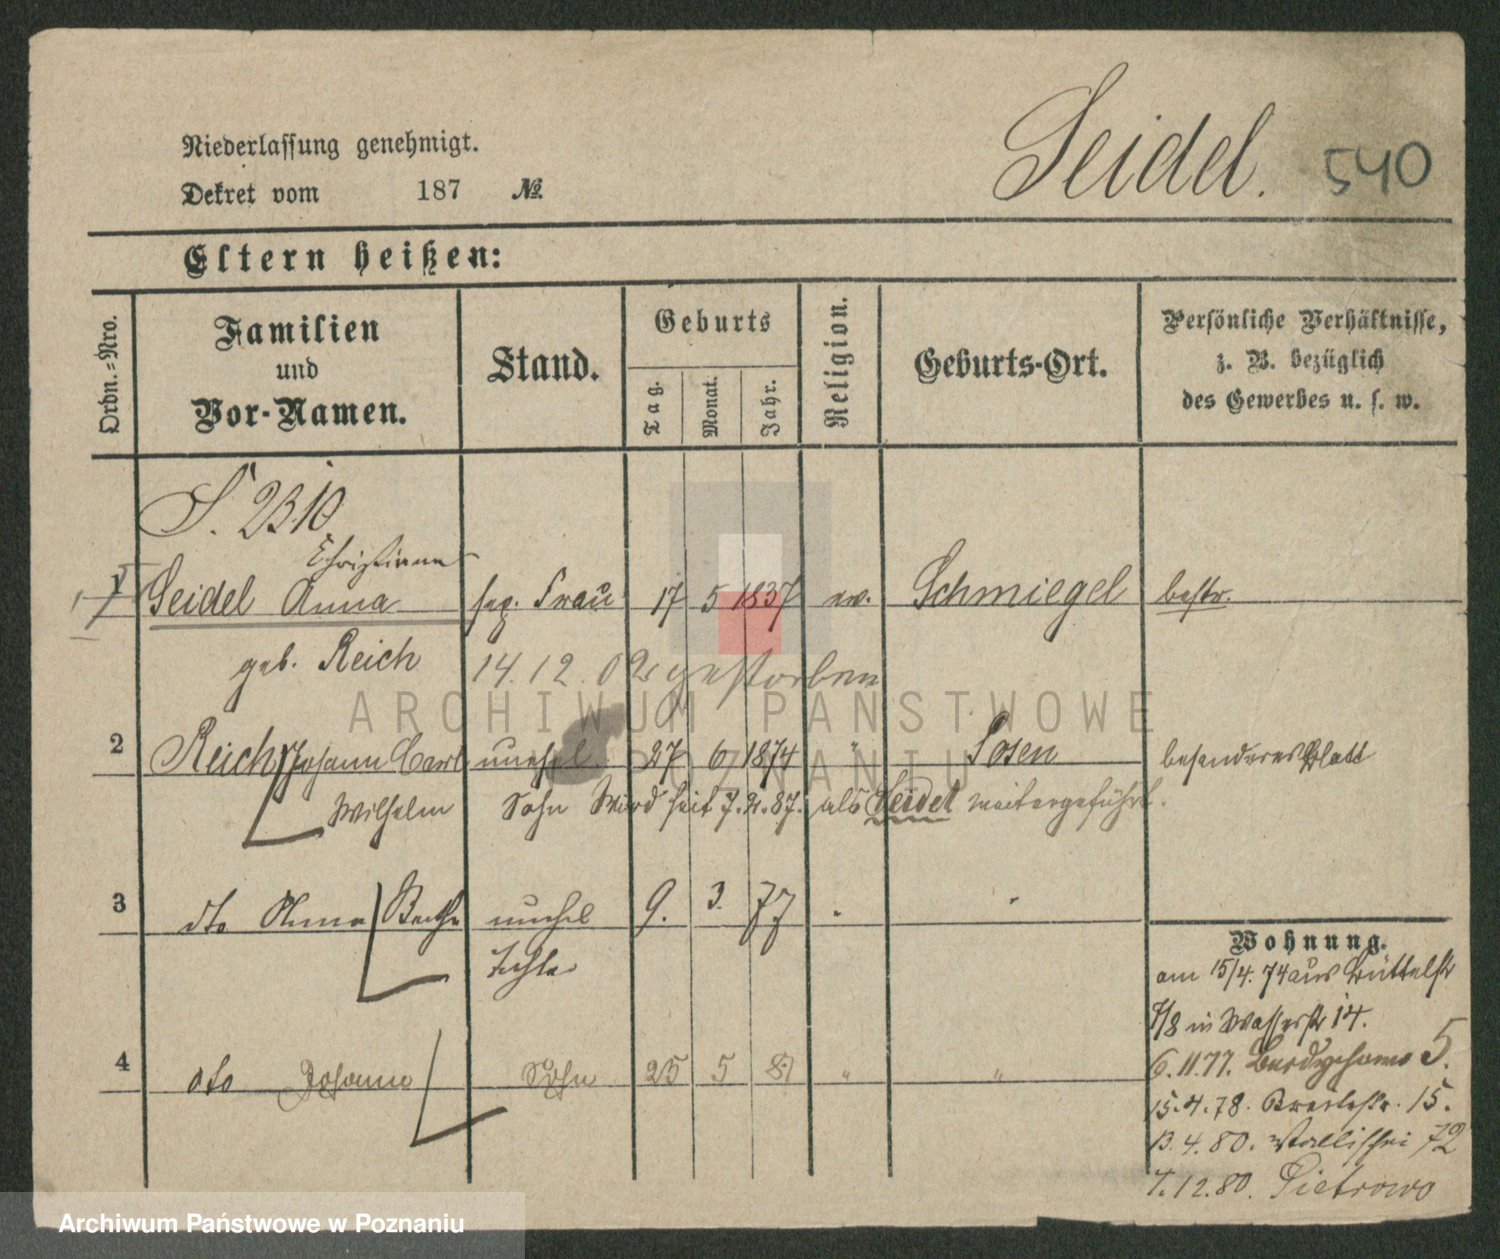 Niederlassung genehmigt.
Dekret vom 187 №
Seidel. 540
Eltern heißen:
Ordn.=Nro.
Familien
und
Vor-Namen.
Stand.
Geburts
Tag.
Monat.
Jahr.
Religion.
Geburts-Ort.
Persönliche Verhältnisse,
z. B. bezüglich
des Gewerbes u. s. w.
S. 2310
Christiane
1 Seidel Anna Frau 17 5 1837 ev. Schmiegel bestr.
geb. Reich 14.12.02 gestorben
2 Reich Johann Carl unehel 27 6 1874 " Posen besonderes Blatt
Wilhelm Sohn Wird seit 7.2.87. als Seidel weitergeführt.
3 dto Anna Bertha unehel 9. 3. 77 " "
Tochter
4 dto Johann Sohn 25 5 81 " "
Wohnung.
am 15/4. 74 aus Büttelstr
7/8 in Wasserstr 14.
6.11.77. 5.
15.4.78. Breitestr. 15.
13.4.80. Wallischei 72
7.12.80. Pietrowo
ARCHIWUM PAŃSTWOWE
W POZNANIU
Archiwum Państwowe w Poznaniu